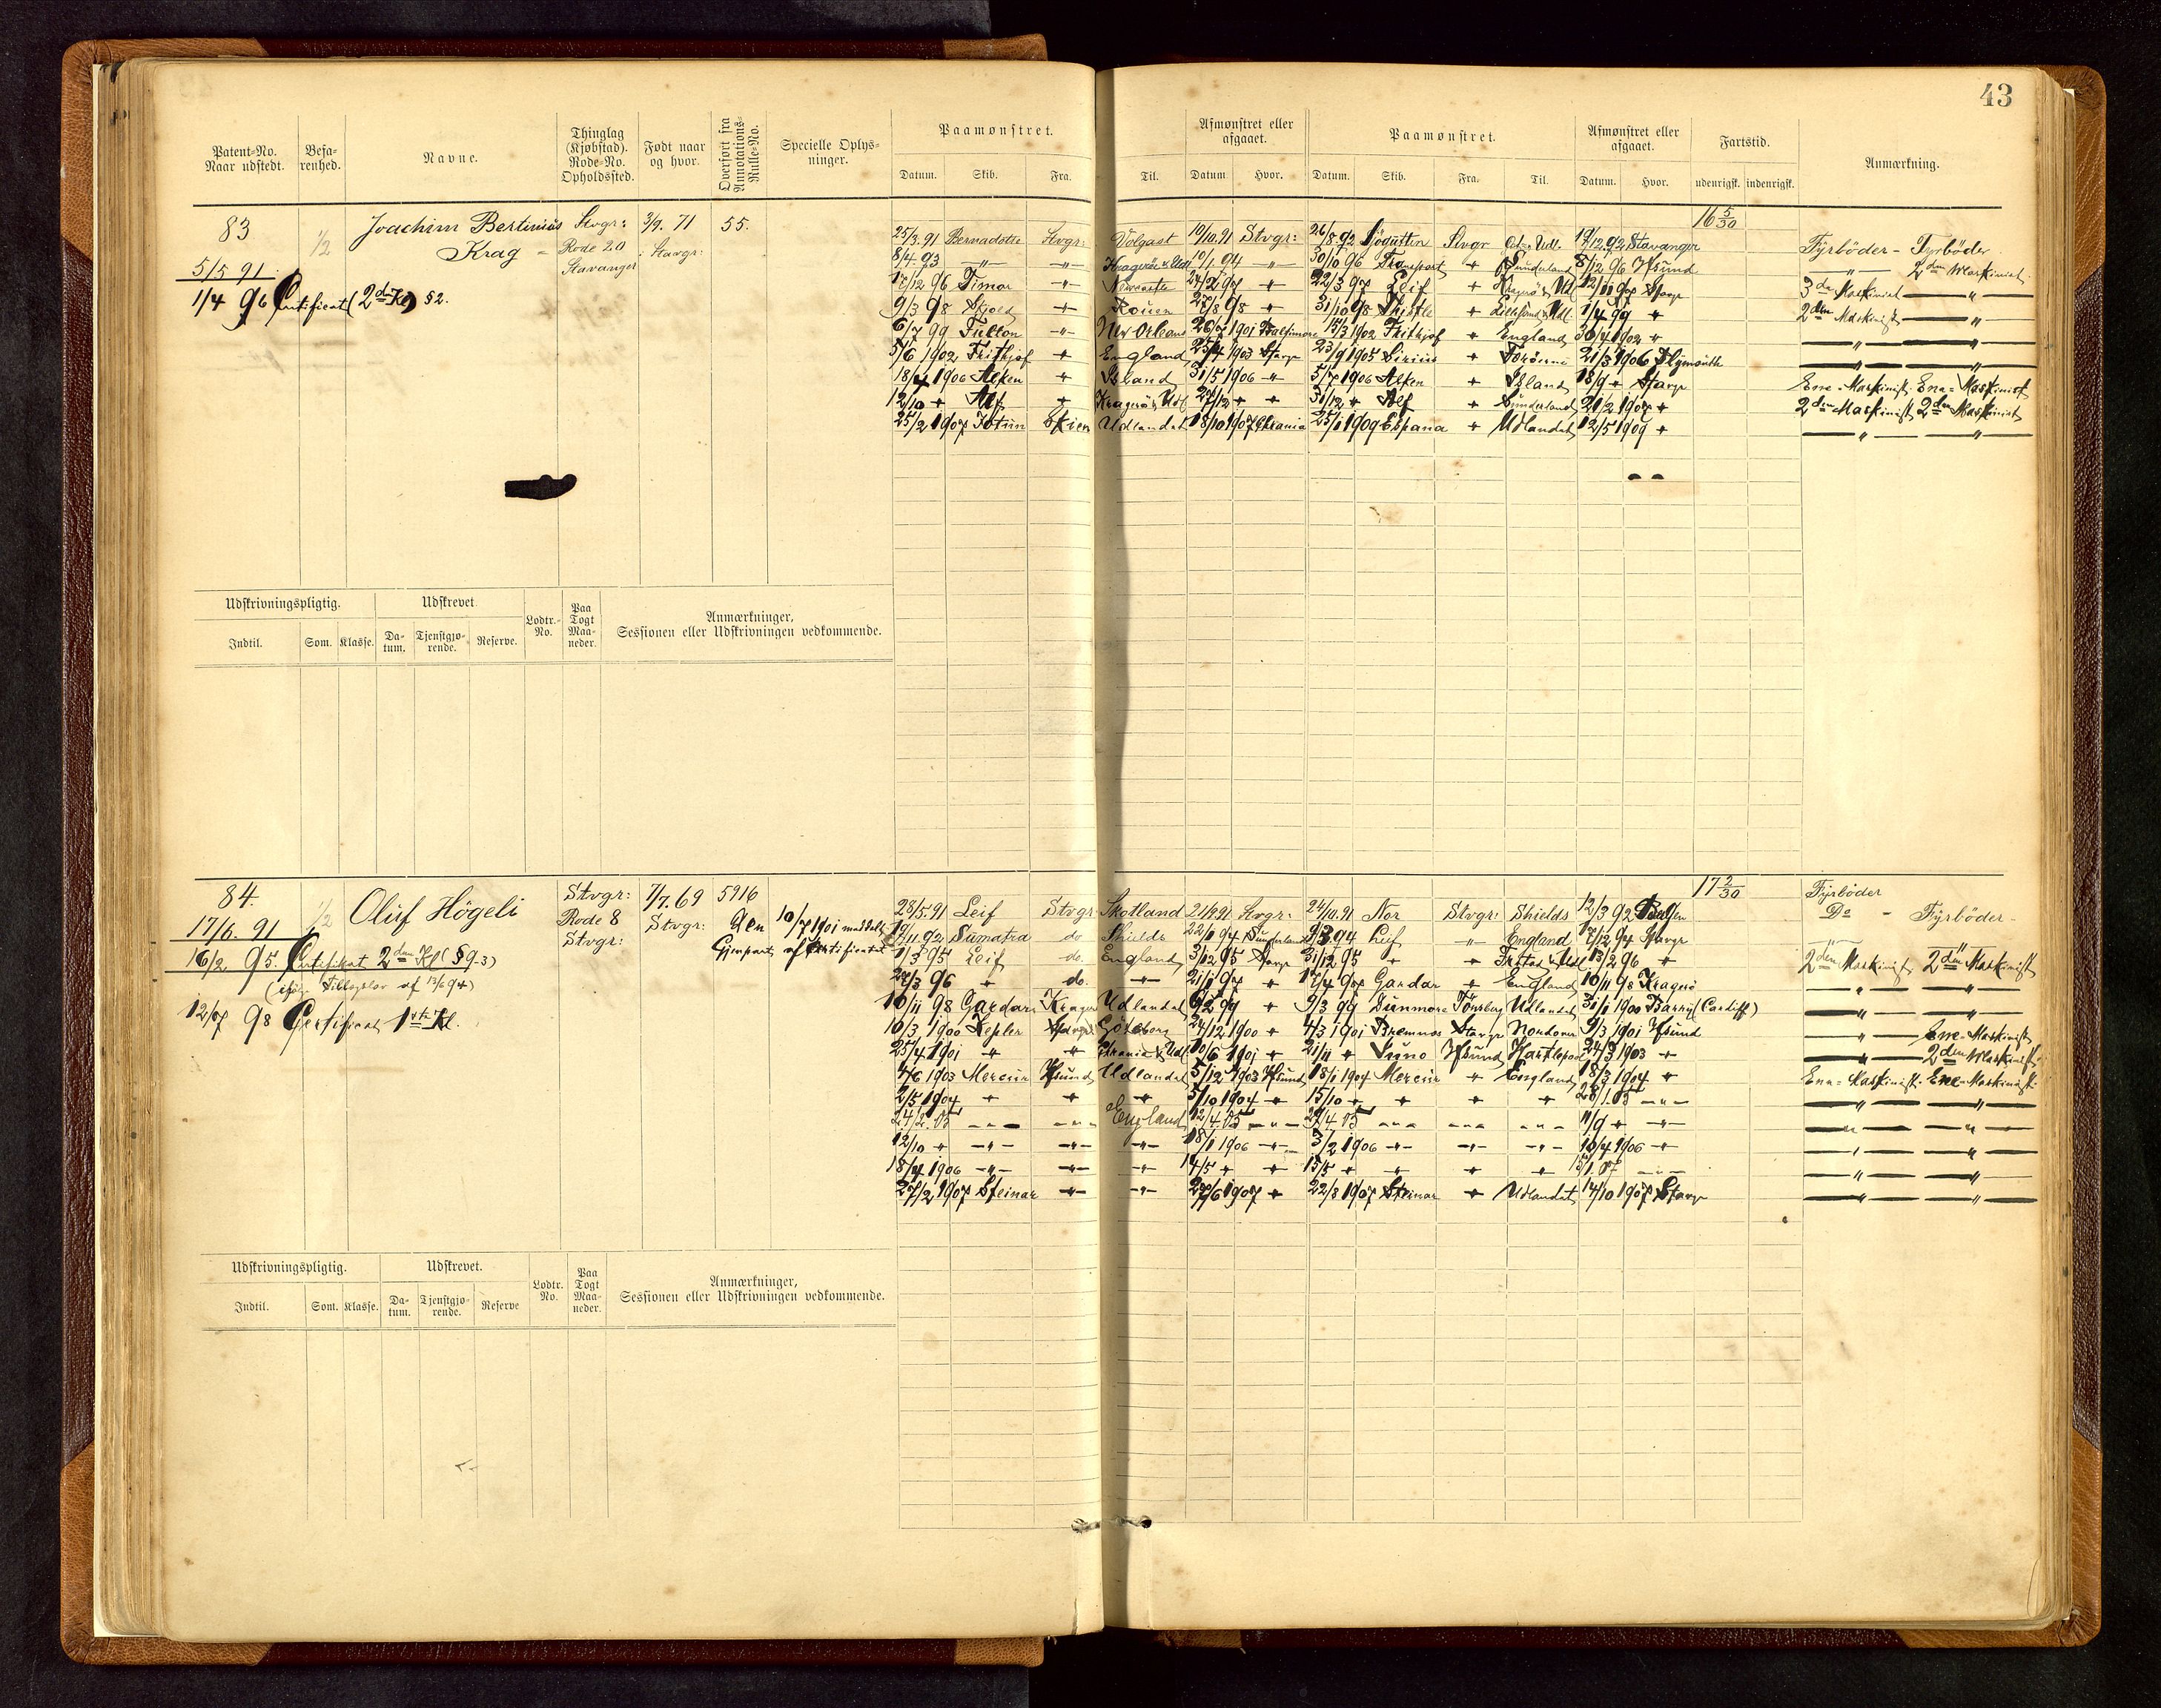 43
Patent=No. Naar udstedt. Befa-renhed. Navne. Thinglag (Kjøbstad). Rode=No. Opholdssted. Født naar og hvor. Overført fra Annotations-Rulle=No. Specielle Oplys-ninger. Paamønstret. Afmønstret eller afgaaet. Paamønstret. Afmønstret eller afgaaet. Fartstid. Anmærkning.
Datum. Skib. Fra. Til. Datum. Hvor. Datum. Skib. Fra. Til. Datum. Hvor. udenrigsk. indenrigsk.
83 1/2 Joachim Bertinius Stvgr: 3/9. 71 55. 16 5/30
Krag - Rode 20 Stavgr:
Stavanger
5/5 91
1/4 96 Certificat (2d Kl) §2.
25/3.91 Bernadotte Stvgr: Volgast 10/10.91 Stvgr: 26/8 92 Sjøgutten Stvgr 19/12 92 Stavanger Fyrböder - Fyrböder
8/4 93 " " 10/1 94 " 30/10 96 Transport " Sunderland 8/12 96 Hsund " 2den Maskinist
17/12 96 Timor " Newcastle 24/2 97 " 22/3 97 Leif " 12/11 97 Stavgr 3die Maskinist "
9/3 98 Skjold " Rouen 27/8 98 " 31/10 98 Thistle " 1/4 99 " 2den Maskinist "
6/7 99 Fulton " New Orleans 26/7 1901 Baltimore 15/3 1902 Frithjof " England 30/4 1902 " " "
5/6 1902 Frithjof " England 25/4 1903 Stavgr 23/9 1905 Sirius " 21/3 1906 Plymouth " "
18/4 1906 Alken " Island 31/5 1906 " 5/7 1906 Alken " Island 18/9 " Stavgr Ene-Maskinist. Ene-Maskinist
12/10 " Alf " Kragerö & Udl 27/12 " " 31/12 " Alf " Sunderland 21/2 1907 " 2den Maskinist 2den Maskinist
25/2 1907 Jötun Skien Udlandet 18/10 1907 Chrania 25/1 1909 Espana " Udlandet 12/5 1909 " " "
Udskrivningspligtig. Udskrevet. Lodtr.-No. Paa Togt Maa-neder. Anmærkninger, Sessionen eller Udskrivningen vedkommende.
Indtil. Som. Klasse. Da-tum. Tjenstgjø-rende. Reserve.
84. 1/2 Oluf Högeli Stvgr: 7/7.69 5916 17 2/30
17/6. 91 Rode 8 Stvgr: Den 10/7 1901 meddelt
Stvgr: Gjenpart af Certificatet
16/2 95. Certifikat 2den Kl (§9-3)
12/7 98 Certificat 1ste Kl.
28/5.91 Leif Stvgr: Skotland 21/9.91 Stvgr: 24/10.91 Nor Stvgr: Shields 12/3 92 Bergen Fyrböder
19/11 92 Sumatra do Shields 22/1 94 Sunderland Leif " England 17/12 94 Stavgr Do - Fyrböder -
1/3 95 Leif do. England 3/12 95 Stavgr 31/12 95 " " 13/2 96 " " "
27/3 96 " do. " 21/1 97 " 17/4 97 Gardar " England 10/11 98 Kragerö 2den Maskinist 2den Maskinist
10/11 98 Gardar Kragerö Udlandet " 9/3 99 Dunmore Tönsberg Udlandet 31/1 1900 Barry (Cardiff) " "
10/3 1900 Kepler Stavgr Göteborg 24/12 1900 " 4/3 1901 Bremnæs Stavgr 9/3 1901 Hsund " "
25/4 1901 " " Chrania & Udl. 10/6 1901 " 21/11 " Juno Hsund Hartlepool 24/3 1903 " " Ene-Maskinist
4/6 1903 Mercur Hsund Udlandet 5/12 1903 Hsund 18/1 1904 Mercur " England 18/3 1904 " " 2den Maskinist
2/5 1904 " " " 5/10 1904 " 15/10 " " " " 28/1.05 " Ene-Maskinist. Ene-Maskinist.
24/2.05 " " England 22/4.05 " 29/4 05 " " " 11/9 " " " "
12/10 " " " " 18/1 1906 " 3/2 1906 " " " 10/4 1906 " " "
18/4 1906 " " " 14/5 " " 15/5 " " " " 15/1.07 " " "
27/2 1907 Steinar " " 27/6 1907 " 22/8 1907 Steinar " Udlandet 14/10 1907 Stavgr " "
Udskrivningspligtig. Udskrevet. Lodtr. No. Paa Togt Maa-neder. Anmærkninger, Sessionen eller Udskrivningen vedkommende.
Indtil. Som. Klasse. Da-tum. Tjenstgjø-rende. Reserve